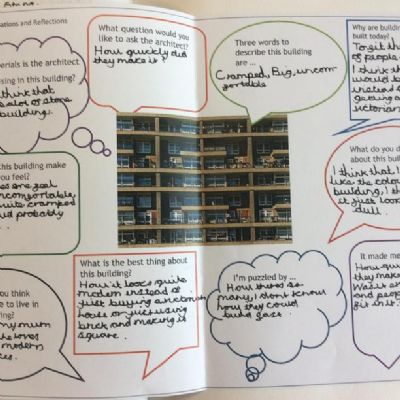 ations and Reflections
erials is the architect
sing in this building?
think that
building.
What question would you
like to ask the architect?
How quickly did
they make it?
Three words to
describe this building
are ...
Cramped, Big, uncom-
fortable
Why are building
built today?
of people
I think th
would b
instead
victorian
this building make
you feel?
uncomfortable,
uite cramped
probably
What do you d
about this buil
I think that I
like the colou
building, I th
it just look
dull.
What is the best thing about
this building?
How it looks quite
modern instead of
just buying a victorian
house or just using
brick and making it
square.
I'm puzzled by ...
How theres so
many, I dont know
how they could
build fast.
It made me
How qui
they make
Was it
and peop
fit in it.
you think
e to live in
ing?
my mum
loves
modern